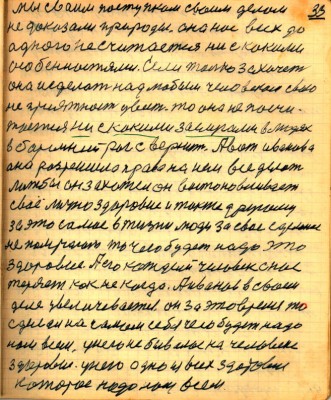 39
мы своим поступком своим делом
не доказали природе. она нас всех до
одного не считается ни с какими
особенностями. Если только захочет
она и сделает над любым человеком свою
не приятность убьет. то она не посчи-
тается ни с какими заслугами в людях
в бараний рог свернет. А вот иванова
она разрешила права на нем все делат
лишбы он захотел он востоновливает
своё лично здоровие и также другому
за это самое в жизни люди за свое сделание
не получают то чего будет надо это
здоровие. Его каждый человек свое
теряет как не когда. А иванов в своем
деле увеличивается он за это время то
сделал на самом себя чего будет надо
нам всем. у него не бывало на человеке
здоровие. у него одно из всех здоровие
которое надо нам всем